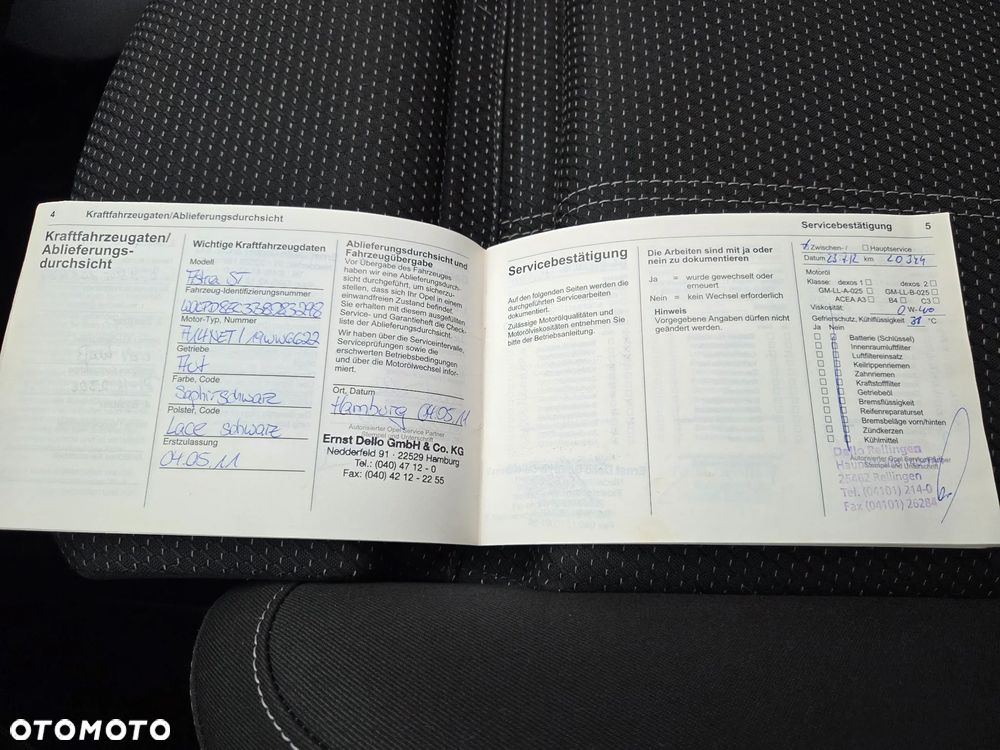 4 Kraftfahrzeugaten/Ablieferungsdurchsicht
Kraftfahrzeugaten/
Ablieferungs-
durchsicht
Wichtige Kraftfahrzeugdaten
Modell
Astra ST
Fahrzeug-Identifizierungsnummer
Motor-Typ, Nummer
Getriebe
Farbe, Code
Saphirschwarz
Polster, Code
Lace schwarz
Erstzulassung
04.05.11
Ablieferungsdurchsicht und
Fahrzeugübergabe
Vor Übergabe des Fahrzeuges
haben wir eine Ablieferungsdurch-
sicht durchgeführt, um sicherzu-
stellen, dass sich Ihr Opel in einem
einwandfreien Zustand befindet.
Sie erhalten mit diesem ausgefüllten
Service- und Garantieheft die Check-
liste der Ablieferungsdurchsicht.
Wir haben über die Serviceintervalle,
Serviceprüfungen sowie die
erschwerten Betriebsbedingungen
und über die Motorölwechsel infor-
miert.
Ort, Datum
Hamburg 04.05.11
Autorisierter Opel Service Partner
Stempel und Unterschrift
Ernst Dello GmbH & Co. KG
Nedderfeld 91 · 22529 Hamburg
Tel.: (040) 47 12 - 0
Fax: (040) 42 12 - 22 55
Servicebestätigung 5
Servicebestätigung
Auf den folgenden Seiten werden die
durchgeführten Servicearbeiten
dokumentiert.
Zulässige Motorölqualitäten und
Motorölviskositäten entnehmen Sie
bitte der Betriebsanleitung.
Die Arbeiten sind mit ja oder
nein zu dokumentieren
Ja = wurde gewechselt oder
erneuert
Nein = kein Wechsel erforderlich
Hinweis
Vorgegebene Angaben dürfen nicht
geändert werden.
Zwischen-/ Hauptservice
Datum km
Motoröl
Klasse: dexos 1 dexos 2
GM-LL-A-025 GM-LL-B-025
ACEA A3 B4 C3
Viskosität: 0W-40
Gefrierschutz, Kühlflüssigkeit °C
Ja Nein
Batterie (Schlüssel)
Innenraumluftfilter
Luftfiltereinsatz
Keilrippenriemen
Zahnriemen
Kraftstofffilter
Getriebeöl
Bremsflüssigkeit
Reifenreparaturset
Bremsbeläge vorn/hinten
Zündkerzen
Kühlmittel
Autorisierter Opel Service Partner
Stempel und Unterschrift
Dello Rellingen
25462 Rellingen
Tel. (04101) 214-0
Fax (04101) 26284
OTOMOTO